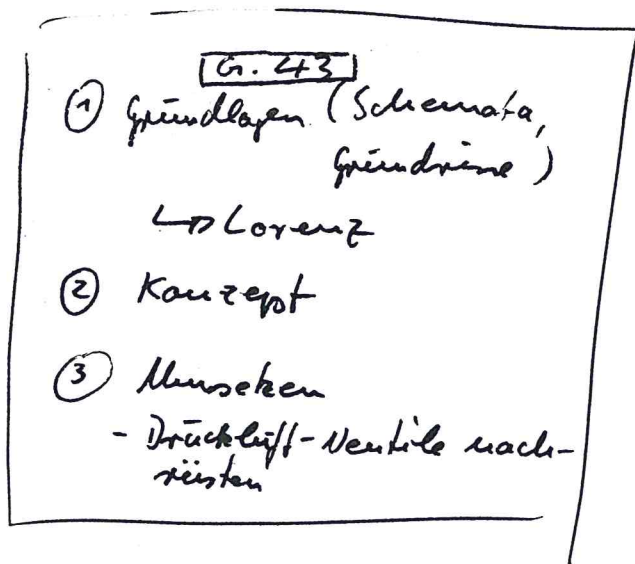 G. 43
① Grundlagen (Schemata,
Grundrisse)
↳ Lorenz
② Konzept
③ Umsetzen
- Druckluft-Ventile nach-
rüsten